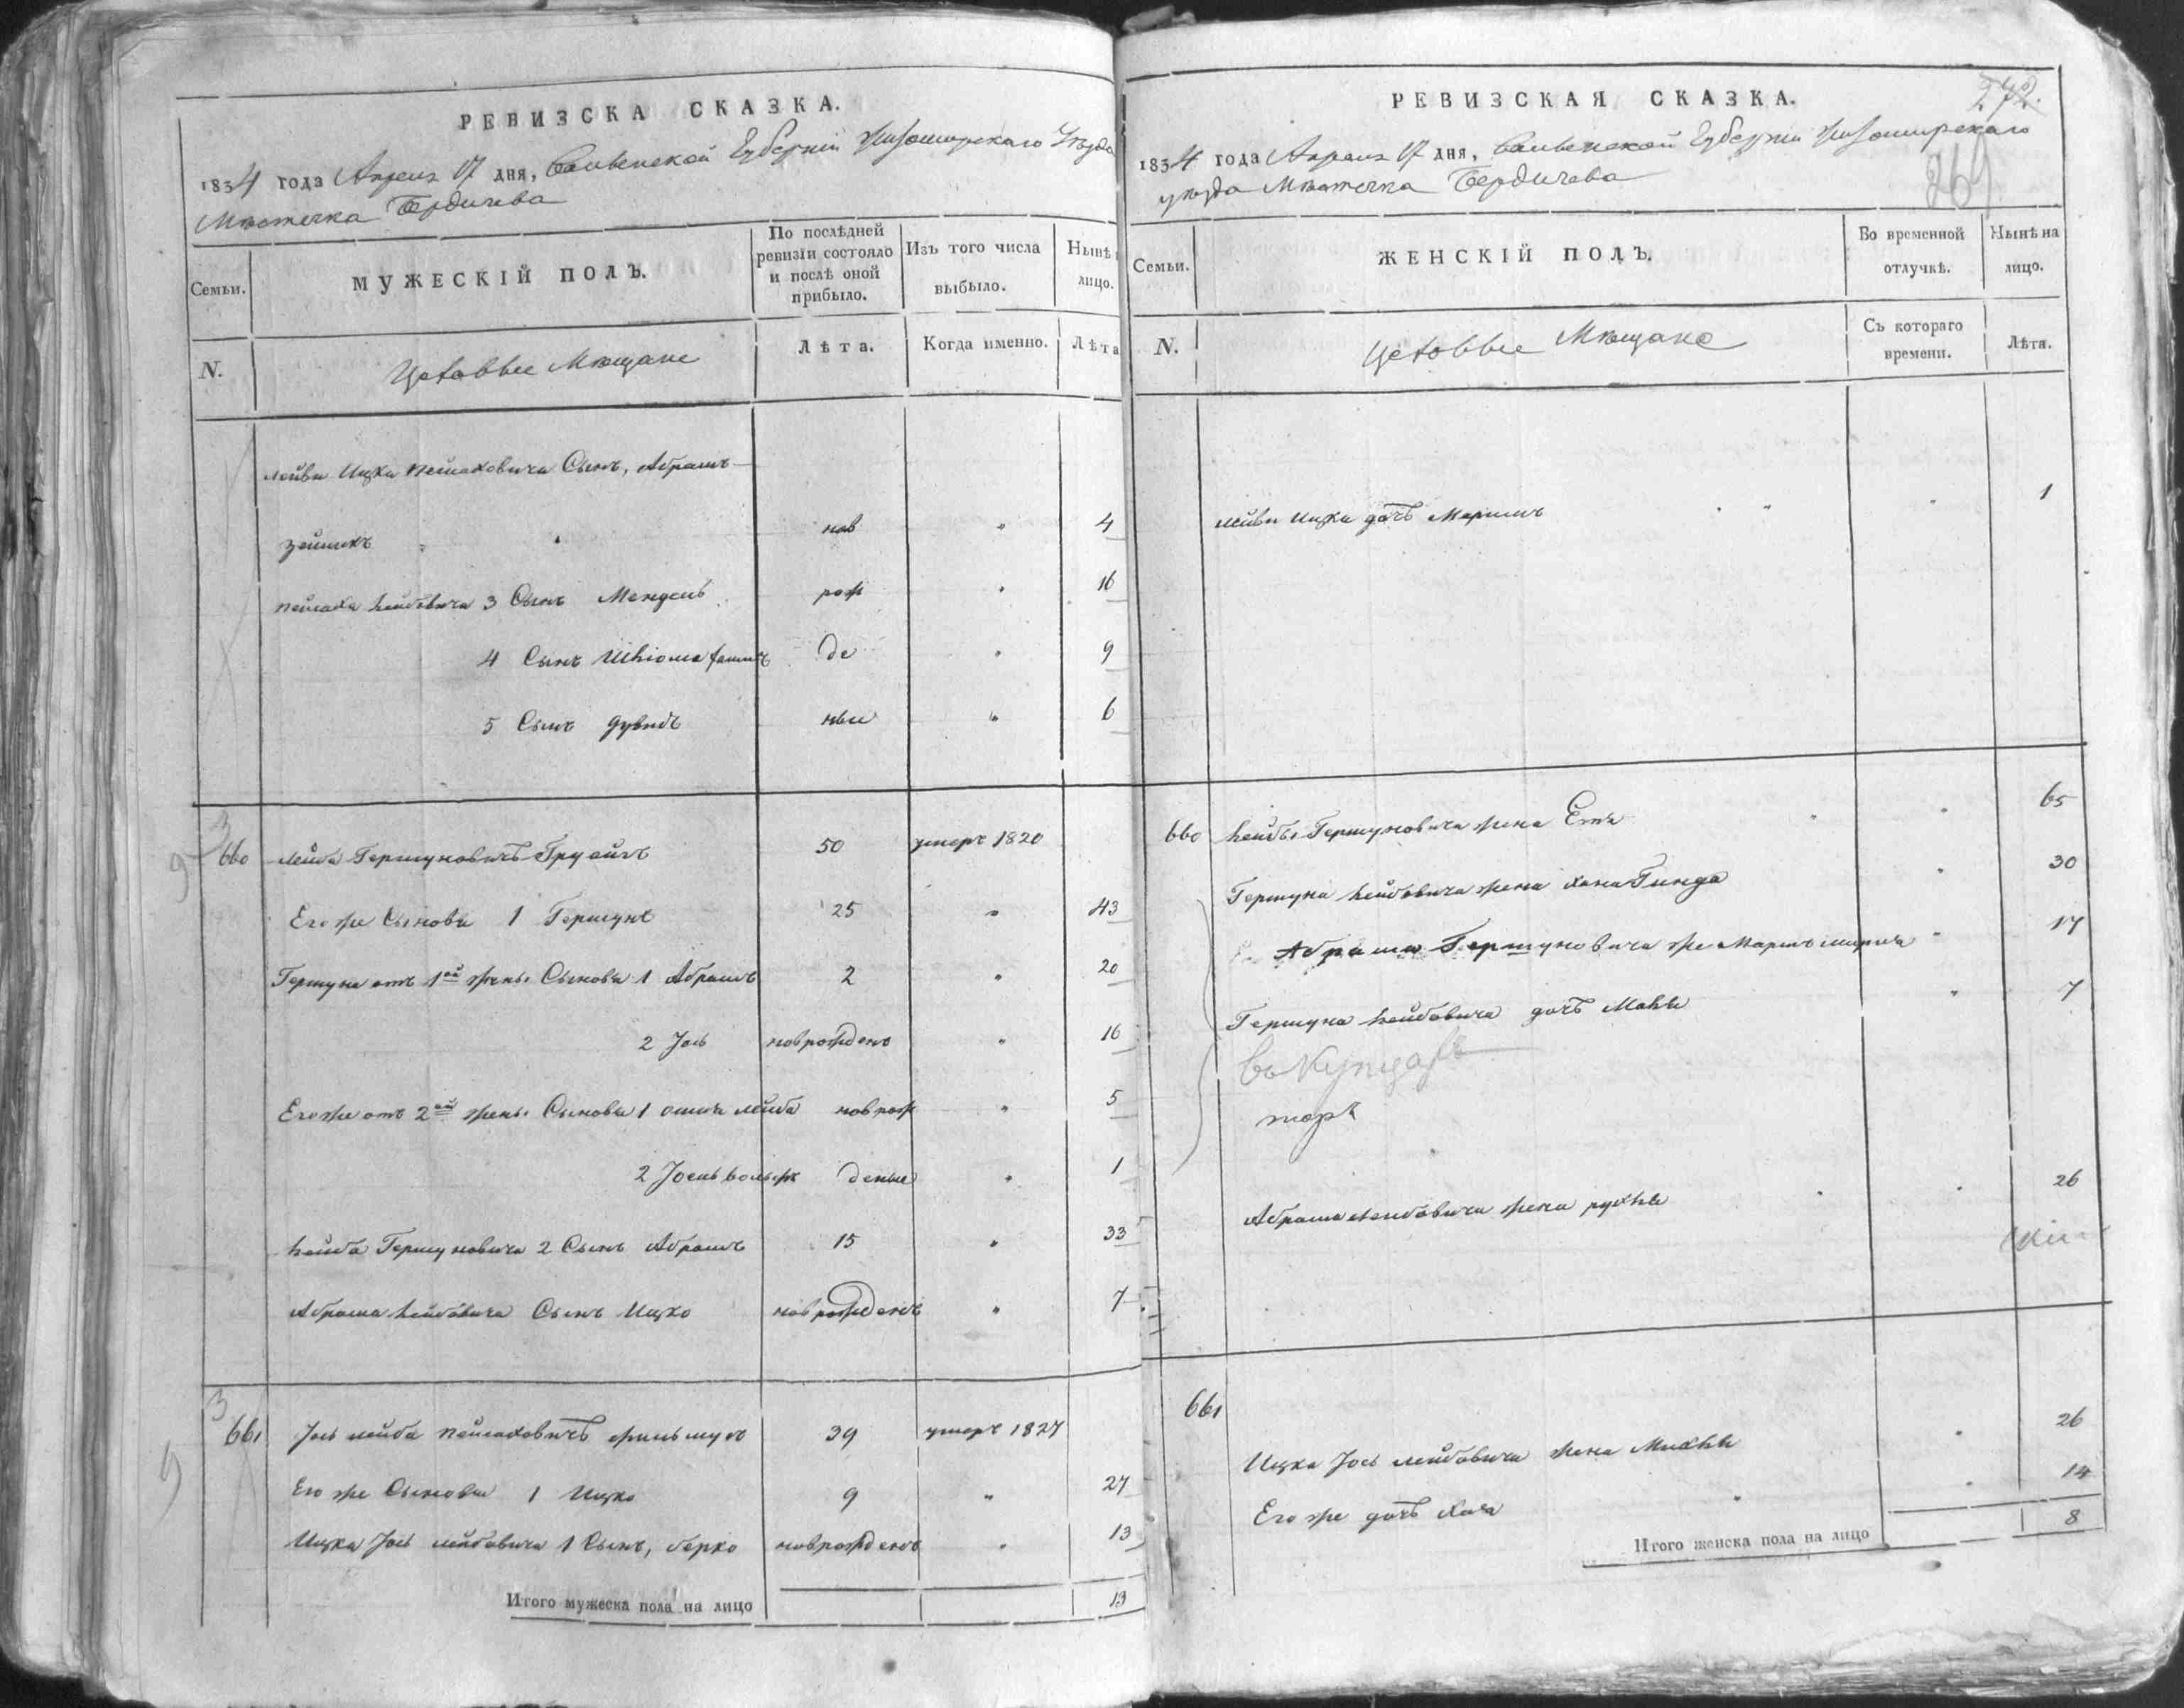 РЕВИЗСКА СКАЗКА.
1834 года Апреля 17 дня, Волынской Губернiи Житомирскаго Уѣзда
Мѣстечка Бердичева
Семьи.
МУЖЕСКIЙ ПОЛЪ.
По послѣдней ревизiи состояло и послѣ оной прибыло.
Изъ того числа выбыло.
Нынѣ лицо.
N.
Цеховые Мѣщане
Лѣта.
Когда именно.
Лѣта
Лейбы Ицка Пейсаховича Сынъ, Абрамъ
Зейликъ нов " 4
Пейсаха Лейбовича 3 Сынъ Мендель рож " 16
4 Сынъ Шлiома де " 9
5 Сынъ Дувидъ ные " 6
660 Лейба Гершуновичъ 50 умеръ 1820
Его же Сыновья 1 Гершунъ 25 " 43
Гершуна отъ 1ой жены Сыновья 1 Абрамъ 2 " 20
2 Iось новрожденъ " 16
Его же отъ 2ой жены Сыновья 1 Лейба новрож " 5
2 Iосьвольфъ денные " 1
Лейба Гершуновича 2 Сынъ Абрамъ 15 " 33
Абрама Лейбовича Сынъ Ицко новрожденъ " 7
661 Iось Лейба Пейсаховичъ 39 умеръ 1827
Его же Сыновья 1 Ицко 9 " 27
Ицка Iось Лейбовича 1 Сынъ, Берко новрожденъ " 13
Итого мужеска пола на лицо 13
РЕВИЗСКАЯ СКАЗКА.
272.
269
1834 года Апреля 17 дня, Волынской Губернiи Житомирскаго
уѣзда Мѣстечка Бердичева
Семьи.
ЖЕНСКIЙ ПОЛЪ.
Во временной отлучкѣ.
Нынѣ на лицо.
N.
Цеховые Мѣщане
Съ котораго времени.
Лѣта.
Лейбы Ицка дочь Маримъ " 1
660 Лейбы Гершуновича жена Етя " 65
Гершуна Лейбовича жена Хана Гинда " 30
Абрама Гершуновича же " 17
Гершуна Лейбовича дочь Малка " 7
Абрама Лейбовича жена Рухля " 26
661
Ицка Iось Лейбовича жена Михля " 26
Его же дочь Хая " 14
Итого женска пола на лицо 8